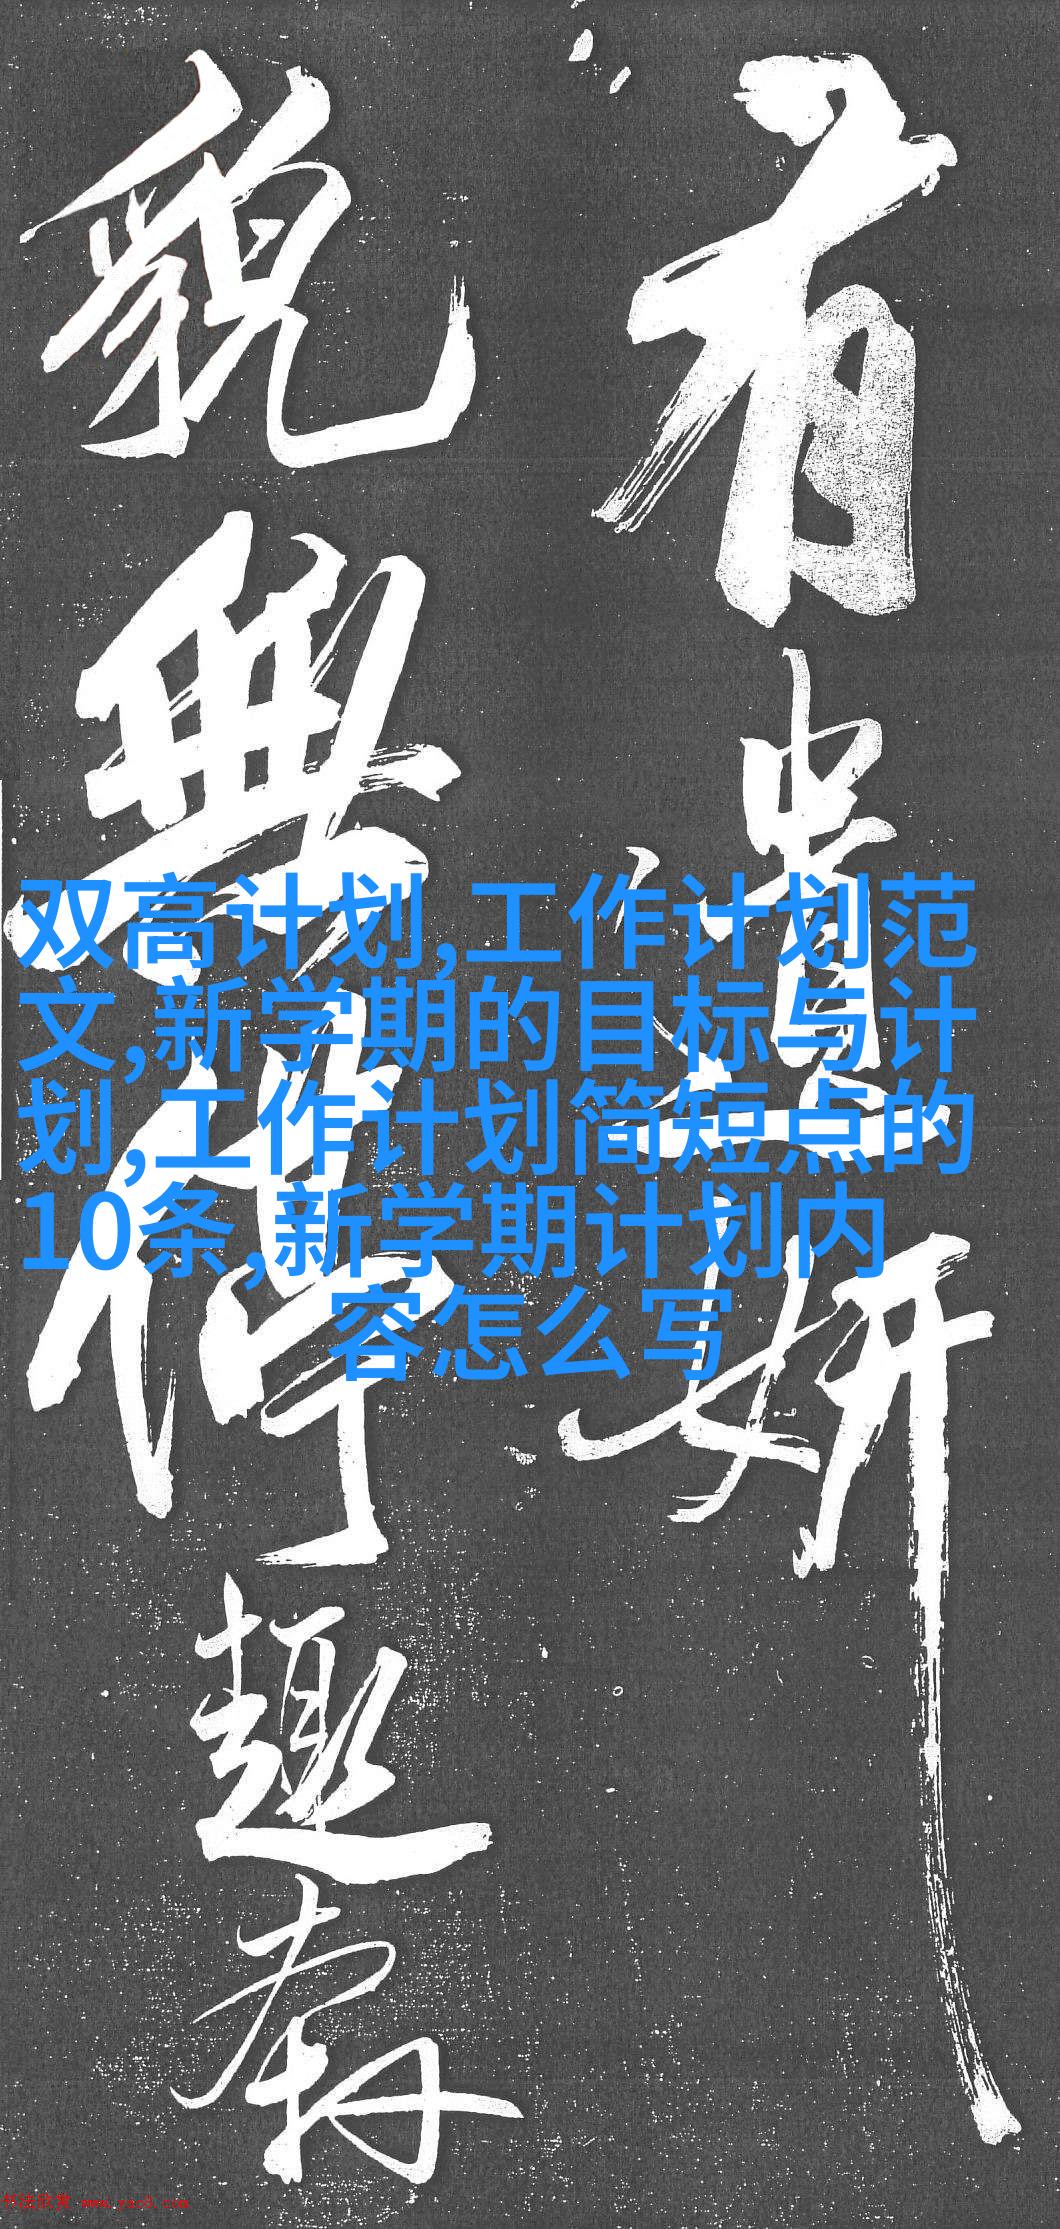 有遺妍
貌無停趣
双高计划,工作计划范
文,新学期的目标与计
划,工作计划简短点的
10条,新学期计划内
容怎么写